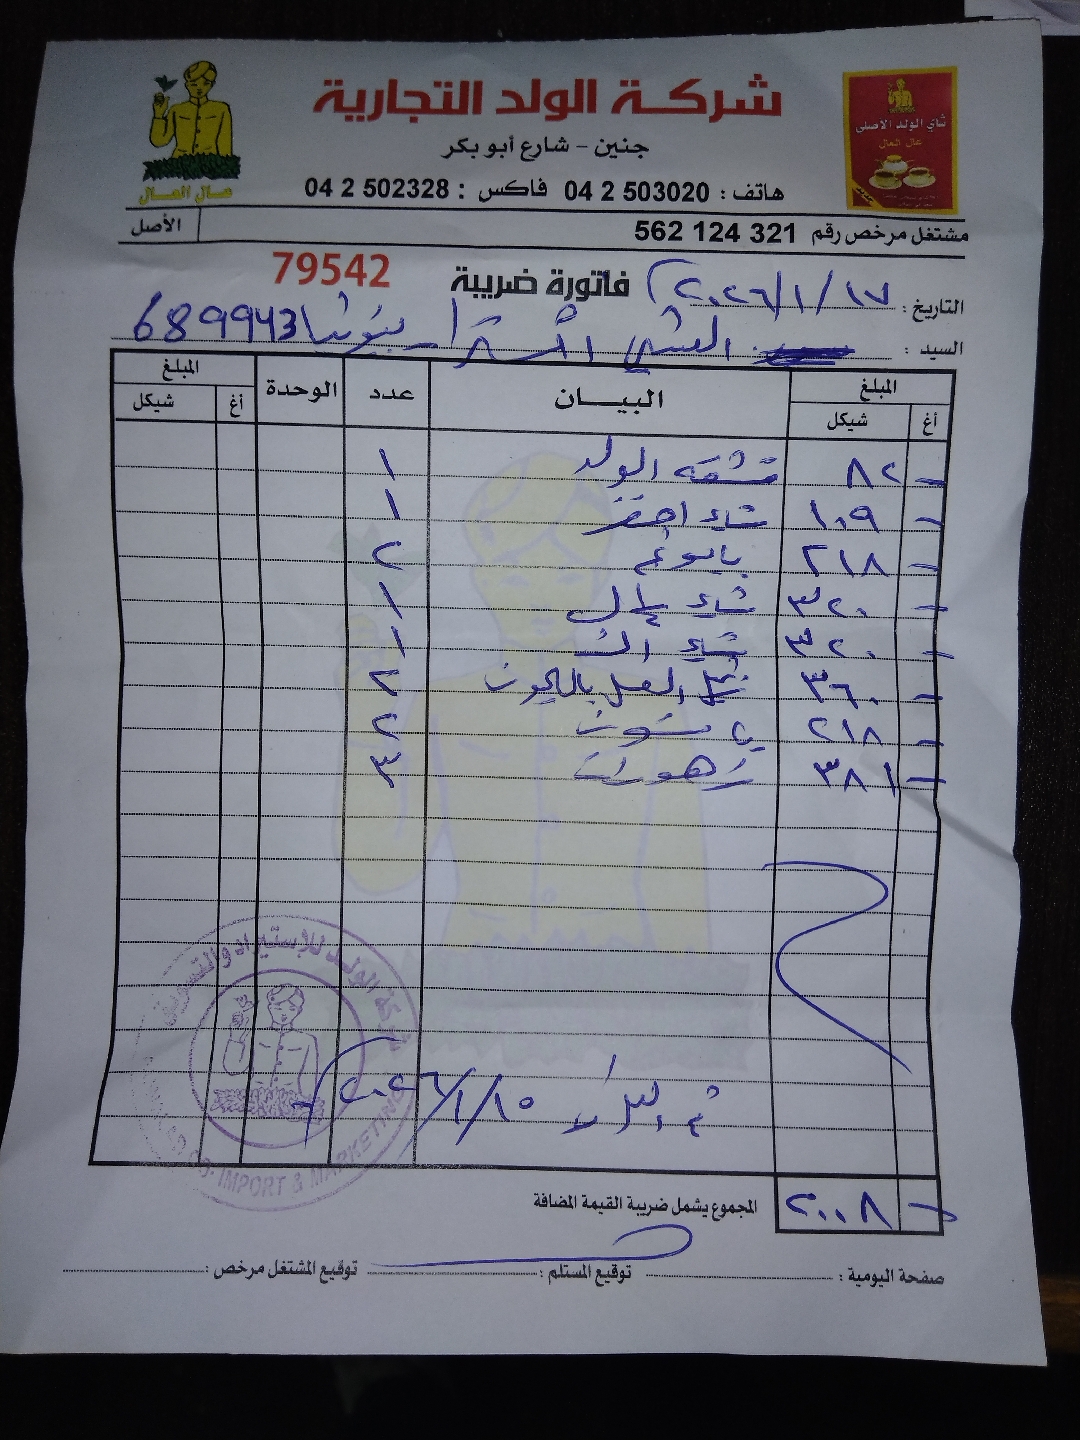 شركة الولد التجارية
شاي الولد الاصلي
عال العال
عال العال
جنين - شارع أبو بكر
هاتف : 04 2 503020 فاكس : 04 2 502328
مشتغل مرخص رقم 562 124 321
الأصل
فاتورة ضريبة 79542
التاريخ : ٢٠٢٦/١/١٧
السيد : 689943
المبلغ البيـــان عدد الوحدة المبلغ
أغ شيكل أغ شيكل
٨٢ الولد ١
١٠٩ شاي اخضر ١
٢١٨ بابونج ٢
٣٢٠ شاي ١
٣٢٠ شاي ١
٣٦٠ العسل بالليمون ٢
٢١٨ يانسون ٢
٣٨١ زهورات ٣
شركة الولد للإستيراد والتسويق
IMPORT & MARKETING
٢٠٢٦/١/١٥
المجموع يشمل ضريبة القيمة المضافة ٢٠٠٨
صفحة اليومية : توقيع المستلم : توقيع المشتغل مرخص :